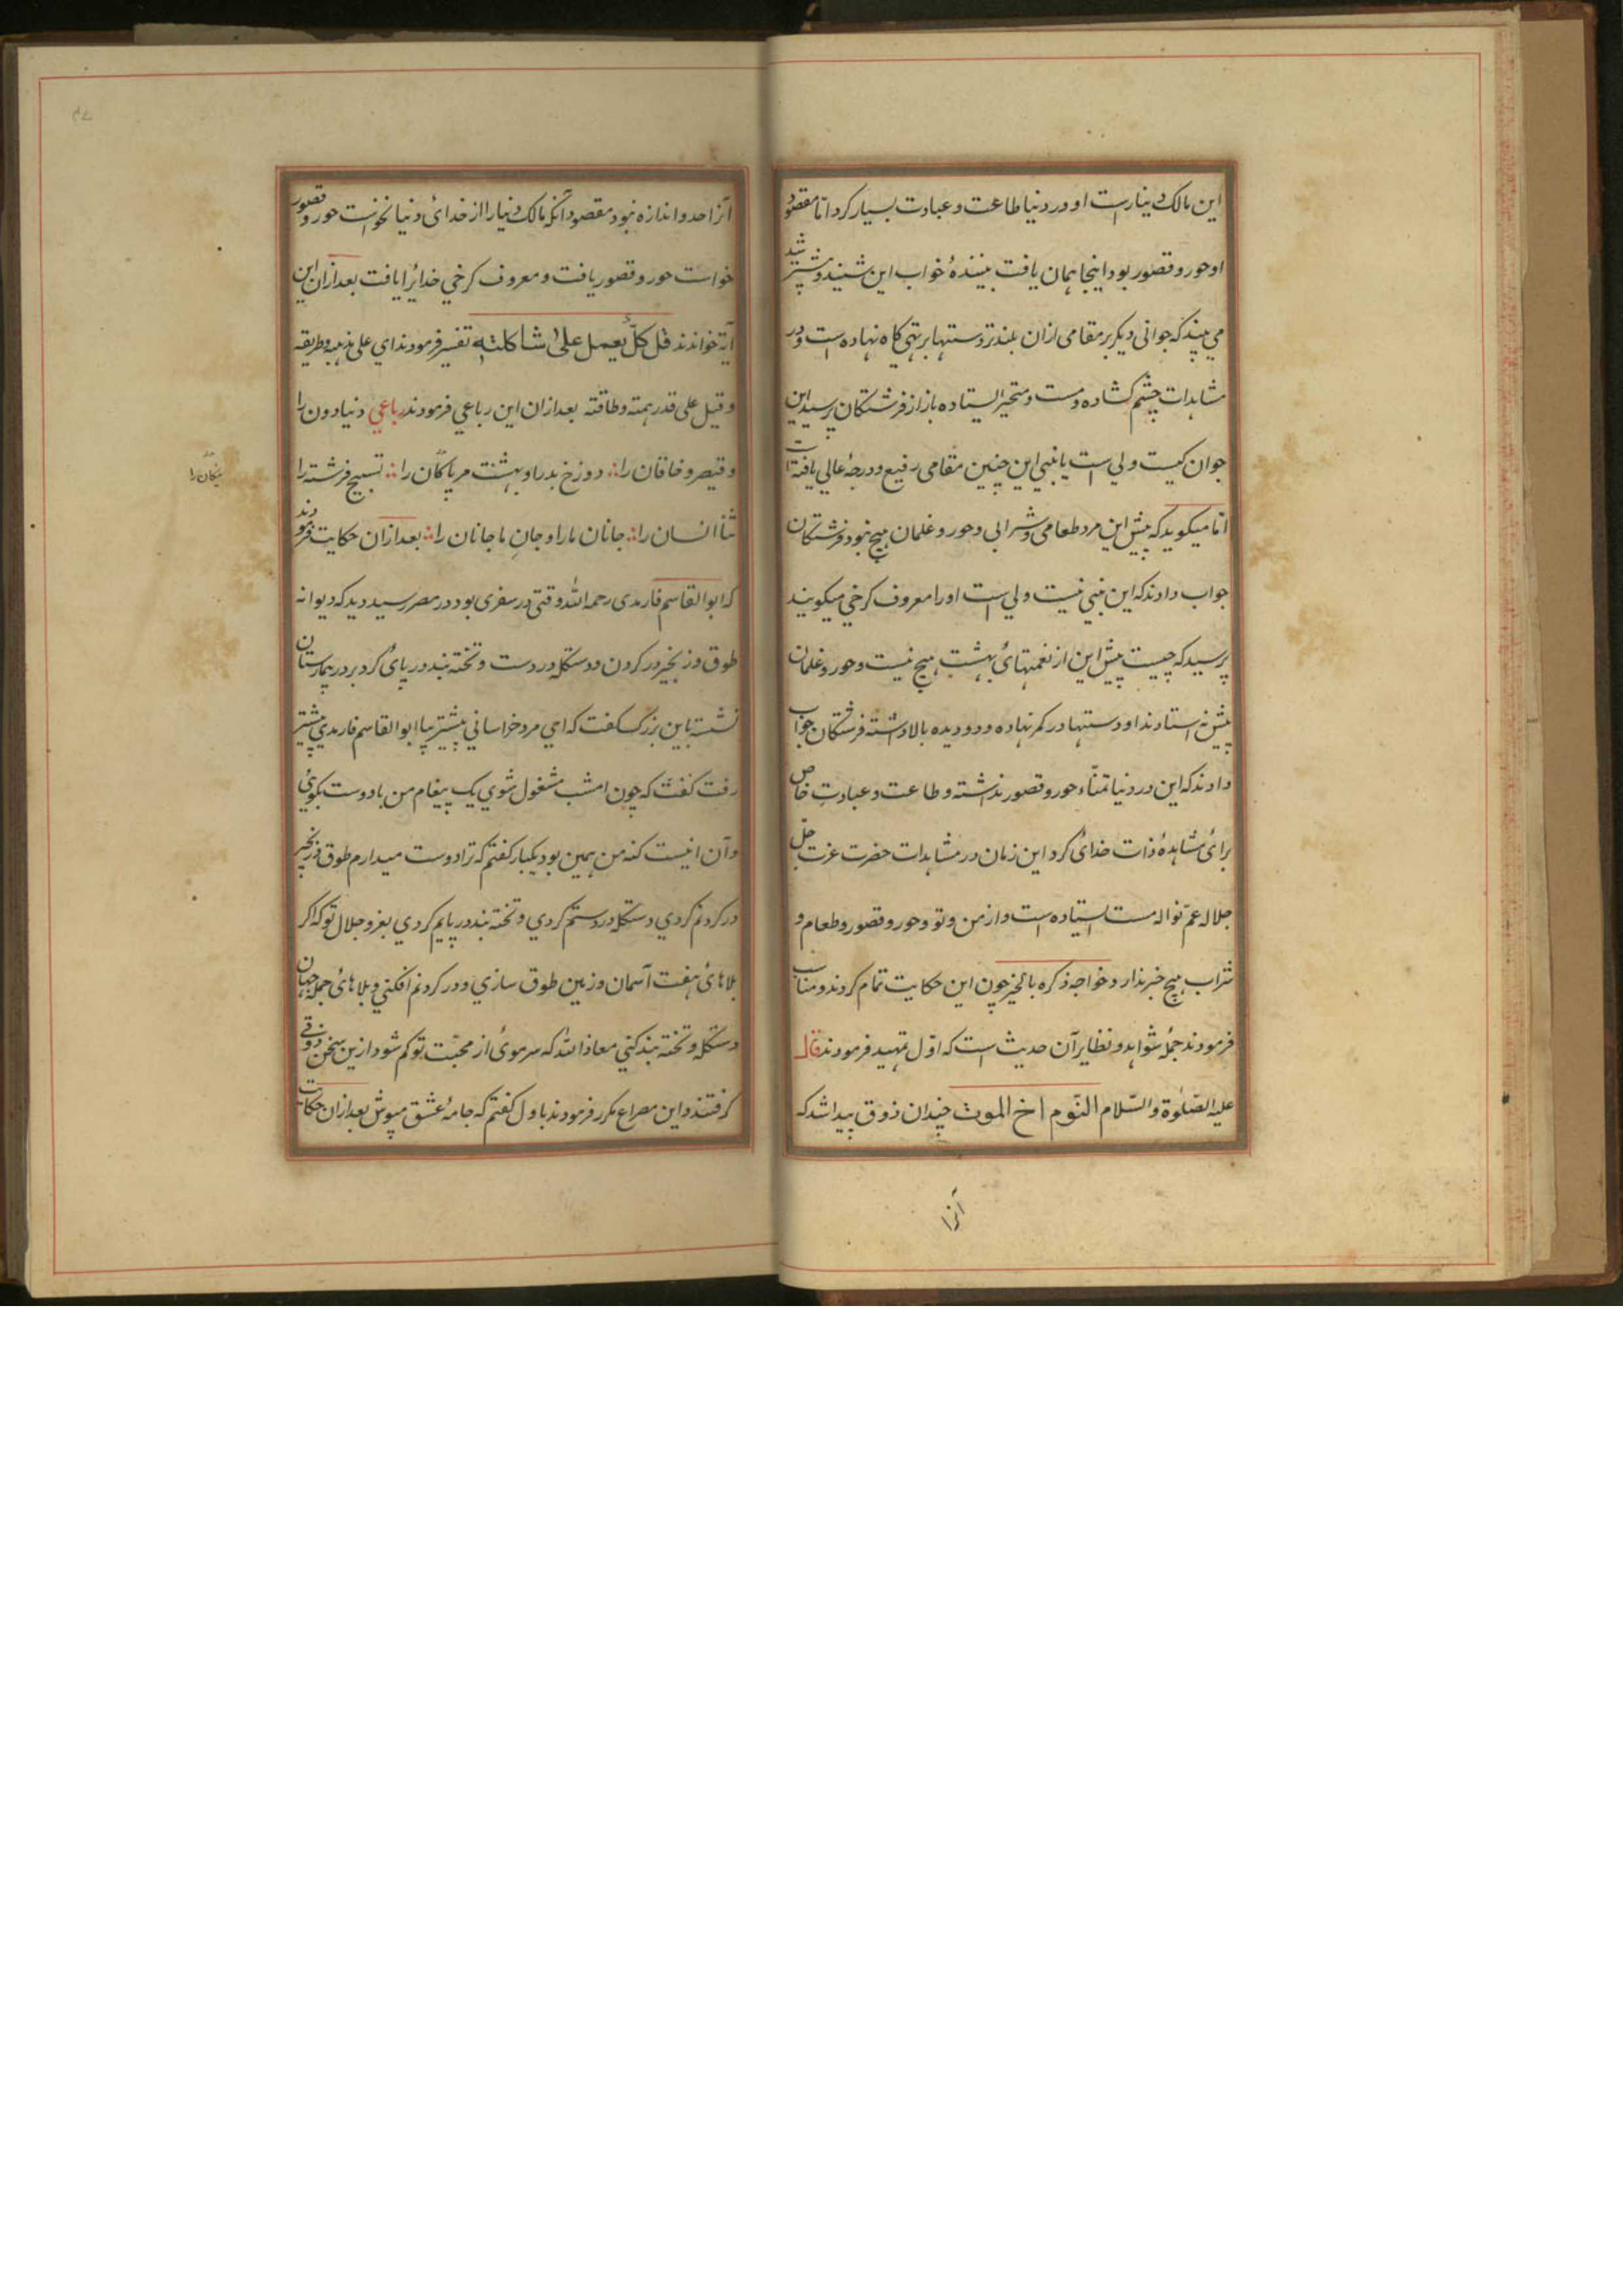 این مالک دینارست او در دنیا طاعت و عبادت بسیار کرد اما مقصود
او حور و قصور بود اینجا همان یافت بینندهٔ خواب این شنید و پیشتر شد
می بیند که جوانی دیکر بر مقامی ازان بلندتر دستها بر تهی کاه نهاده است و در
مشاهدات چشم کشاده و مست و متحیر ایستاده باز از فرشتکان پرسید این
جوان کیست ولی است یا نبی این چنین مقامی رفیع و درجهٔ عالی یافته است
اما میکوید که پیش این مرد طعامی و شرابی و حور و غلمان هیچ نبود فرشتکان
جواب دادند که این نبی نیست ولی است اورا معروف کرخی میکویند
پرسید که چیست پیش این از نعمتهائ بهشت هیچ نیست و حور و غلمان
پیش نه استادند او دستها در کمر نهاده و دو دیده بالا داشته فرشتکان جواب
دادند که این در دنیا تمناء حور و قصور نداشته و طاعت و عبادتِ خاص
برائ مشاهدهٔ ذات خدائ کرد این زمان در مشاهدات حضرت عزت جل
جلاله عمّ نواله مست ایستاده است و از من و تو و حور و قصور و طعام و
شراب هیچ خبر ندارد خواجه ذکره بالخیر چون این حکایت تمام کردند و مناسب
فرمودند جملهٔ شواهد و نظایر آن حدیث است که اوّل تمهید فرمودند قال
علیه الصّلوٰة والسّلام النّوم اخ الموت چندان ذوق پیدا شد که
آنرا
آنرا حد و اندازه نبود مقصود آنکه مالک دنیارا از خدائ دنیا نخواست حور و قصور
خواست حور و قصور یافت و معروف کرخی خدایرا یافت بعد ازان این
آیة خواندند قل کلٌّ یعمل علیٰ شاکلته تفسیر فرمودند ای علی مذهبه و طریقه
و قیل علی قدر همته و طاقته بعد ازان این رباعی فرمودند رباعي دنیا دون را
و قیصر و خاقان را دوزخ بد را و بهشت مر پاکان را تسبیح فرشته را
نیکان را
ثنا انسان را جانان مارا و جانِ ما جانان را بعد ازان حکایت فرمودند
که ابوالقاسم فارمدی رحمه الله وقتی در سفری بود در مصر رسید دید که دیوانه
طوق و زنجیر در کردن و دستکله در دست و تخته بند در پائ کرده بر در بیمارستان
نشسته باین بزرک کفت که ای مرد خراسانی پیشتر بیا ابوالقاسم فارمدی پیشتر
رفت کفت که چون امشب مشغول شوی یک پیغام من با دوست بکوئی
و آن اینست کنه من همین بود یکبار کفتم که ترا دوست میدارم طوق و زنجیر
در کردنم کردی دستکله در دستم کردی و تخته بند در پایم کردی بعز و جلال تو که اکر
بلاهائ هفت آسمان و زمین طوق سازی و در کردنم افکنی و بلاهائ جمله جهان
دستکله و تخته بند کنی معاذ الله که سر موئ از محبّت تو کم شود ازین سخن ذوقی
کرفتند و این مصراع مکرر فرمودند باول کفتم که جامهٔ عشق مپوش بعد ازان حکایت